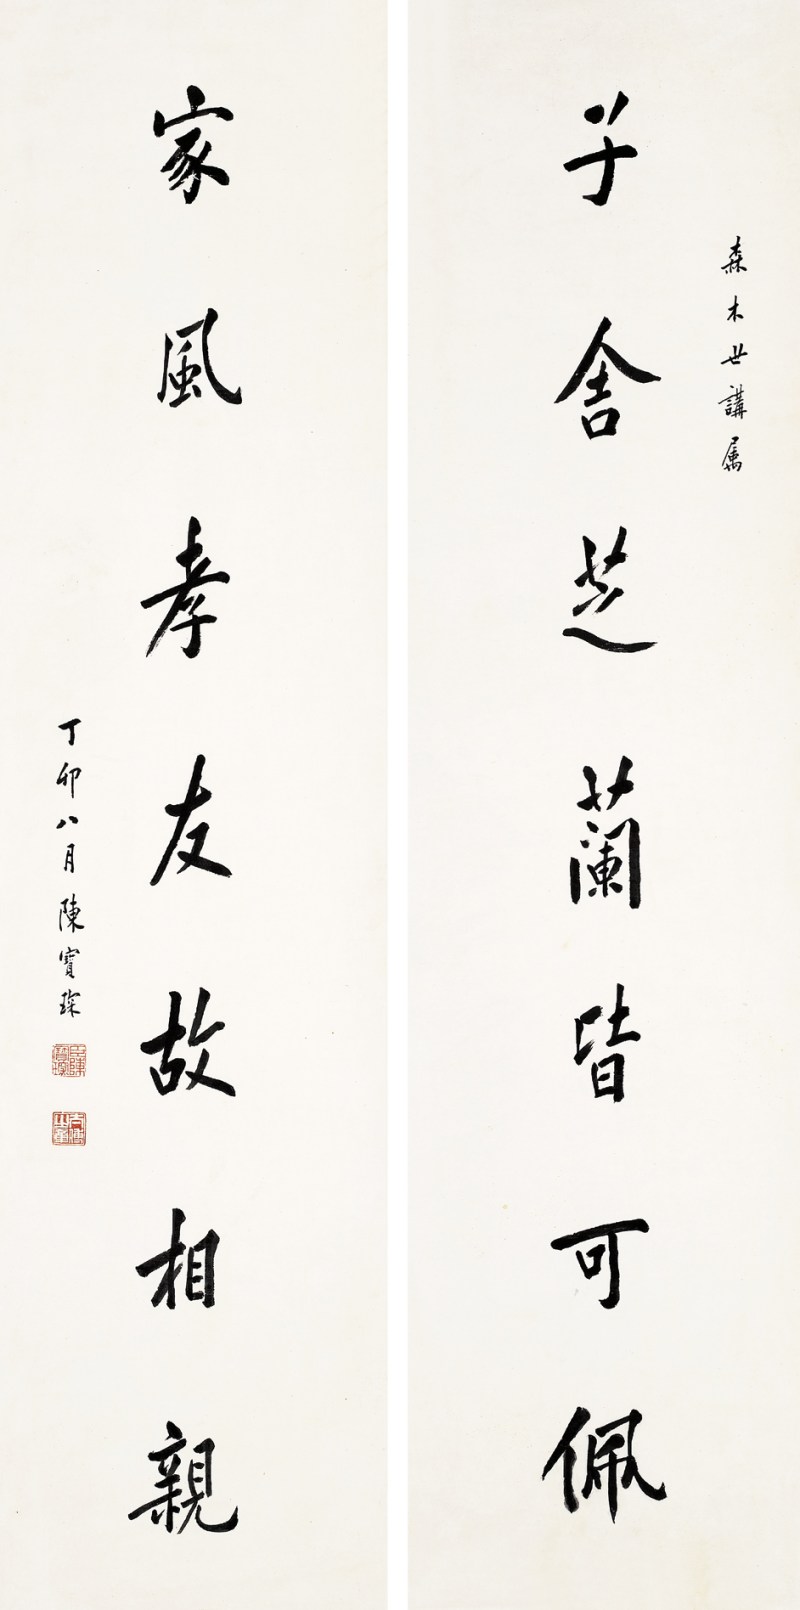 森木世講属
子舍芝蘭皆可佩
家風孝友故相親
丁卯八月陳寶琛